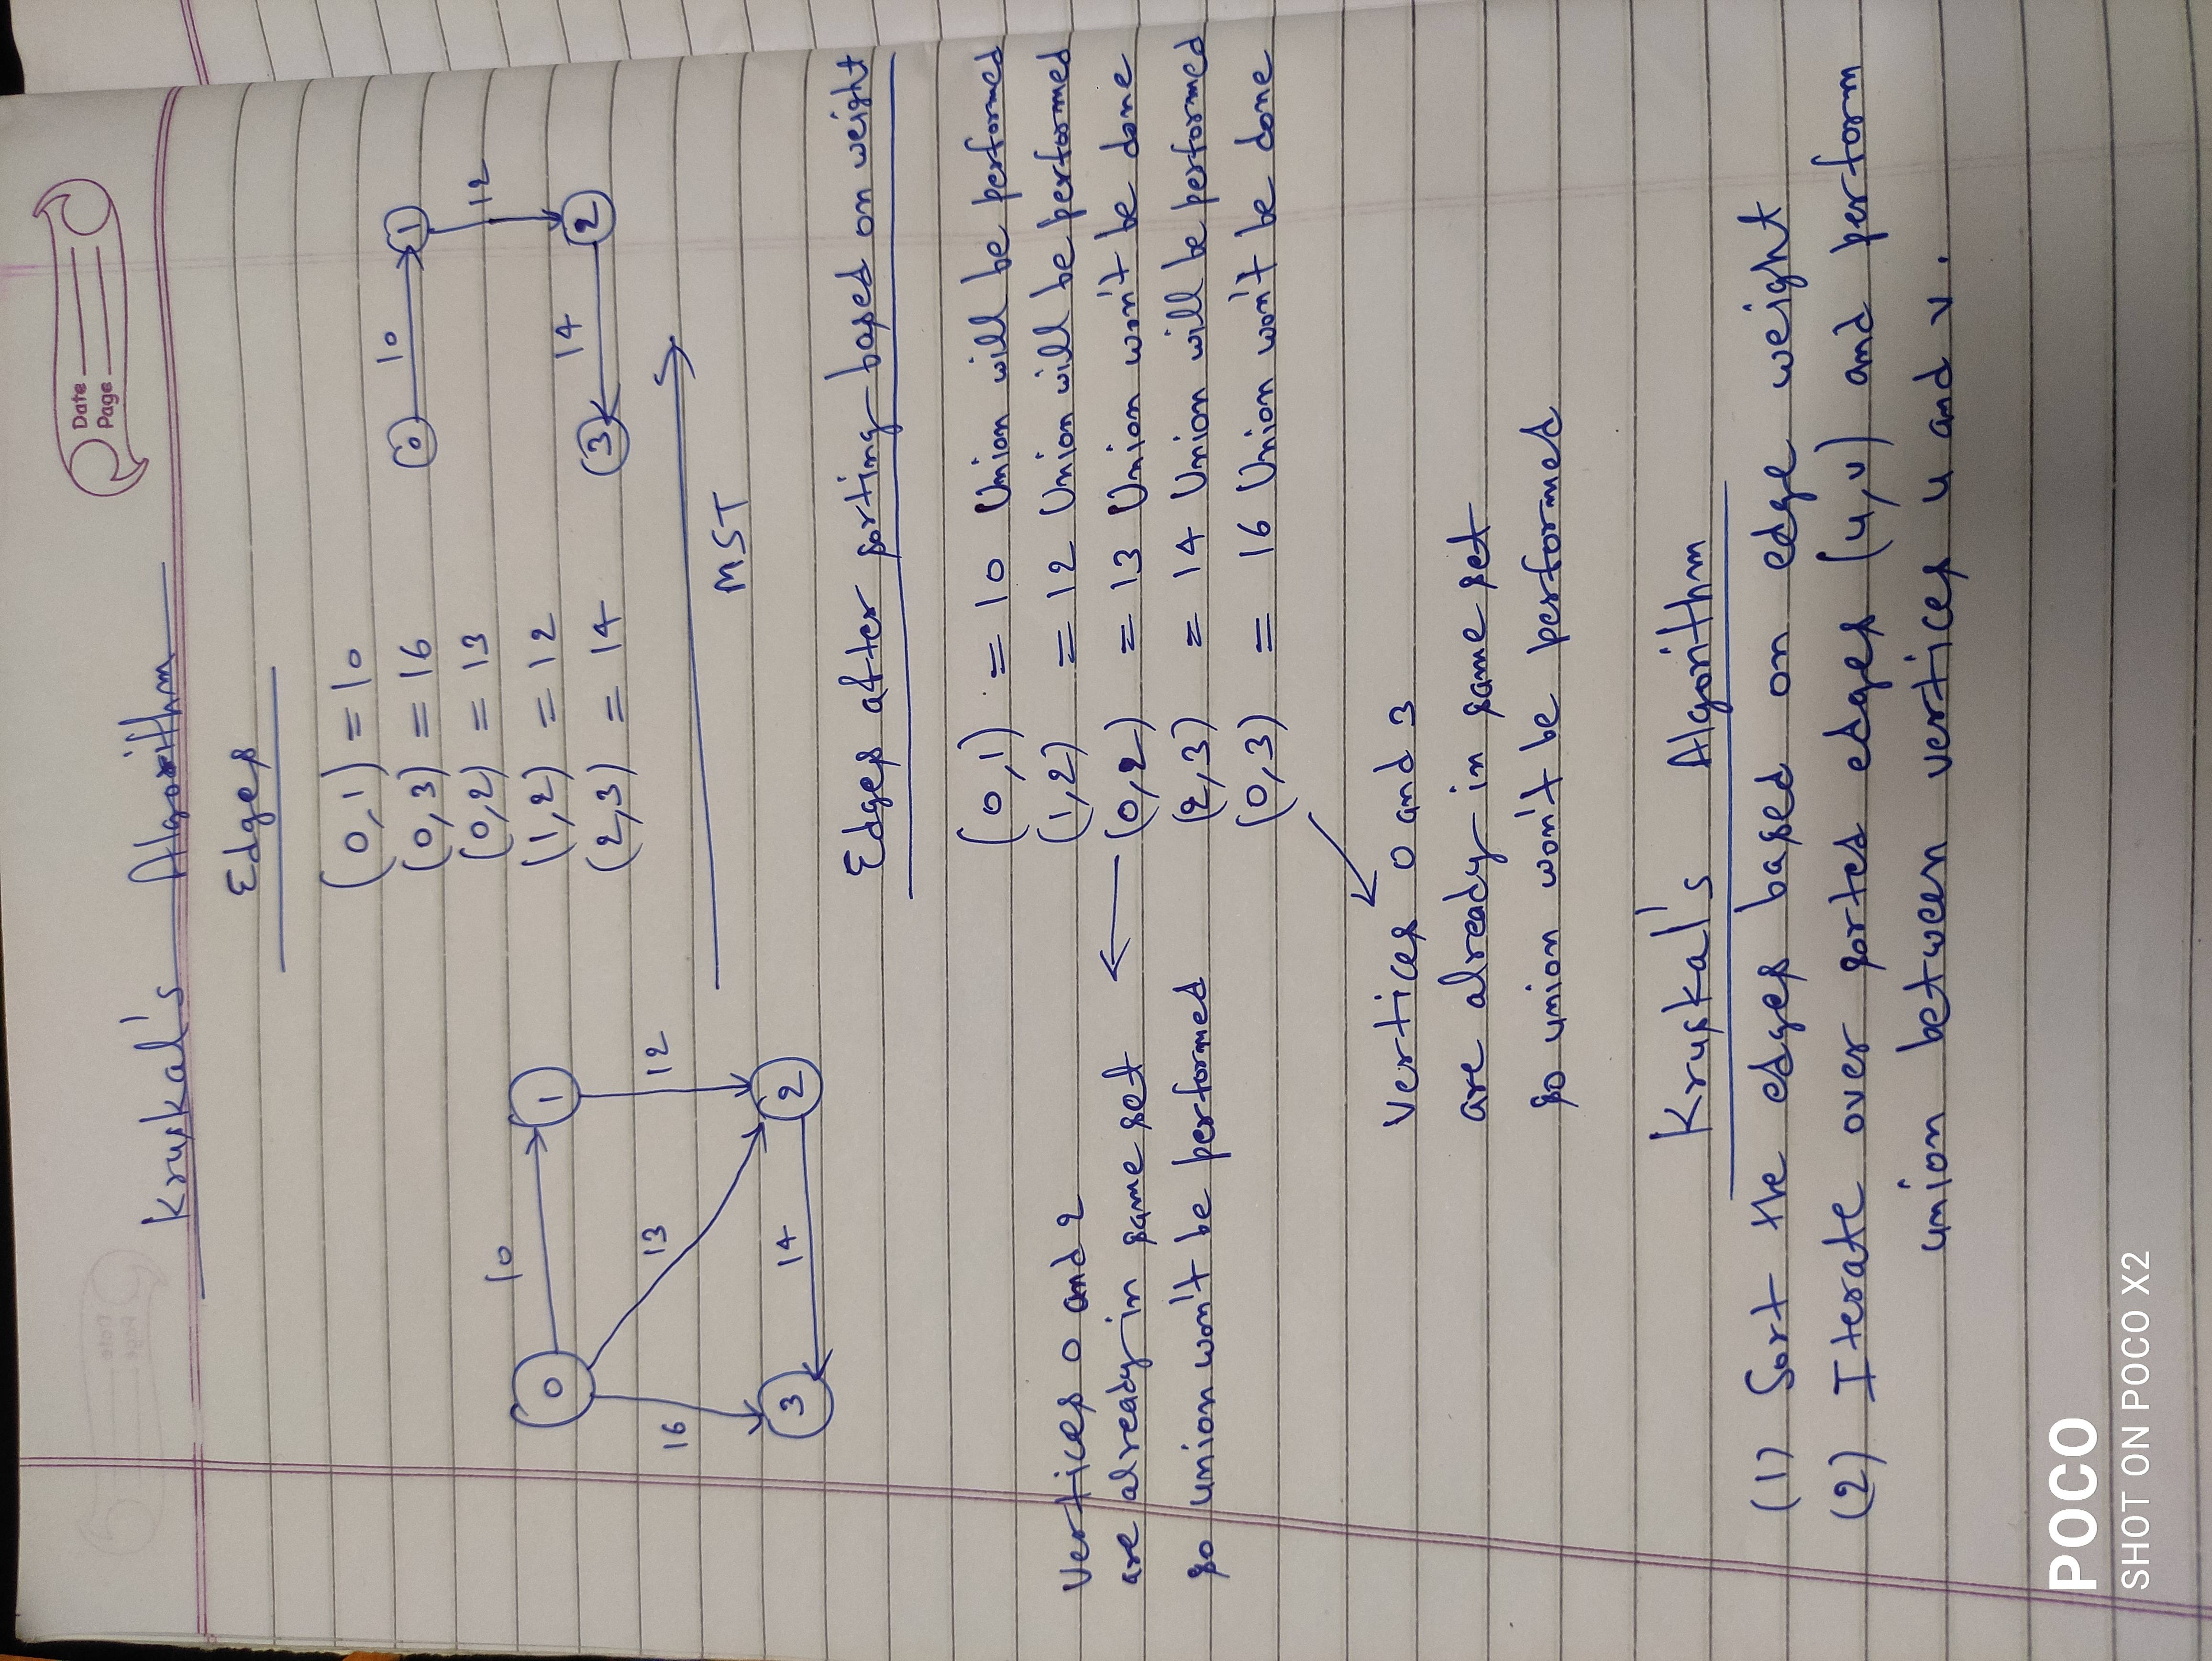 Date
Page
Kruskal's Algorithm
Edges
(0,1) = 10
(0,3) = 16
(0,2) = 13
(1,2) = 12
(2,3) = 14
0 10 1
16 13 12
3 14 2
0 10 1
12
3 14 2
MST
Edges after sorting based on weight
(0,1) = 10 Union will be performed
(1,2) = 12 Union will be performed
(0,2) = 13 Union won't be done
(2,3) = 14 Union will be performed
(0,3) = 16 Union won't be done
Vertices 0 and 2
are already in same set
so union won't be performed
Vertices 0 and 3
are already in same set
so union won't be performed
Kruskal's Algorithm
(1) Sort the edges based on edge weight
(2) Iterate over sorted edges (u,v) and perform
union between vertices u and v.
POCO
SHOT ON POCO X2